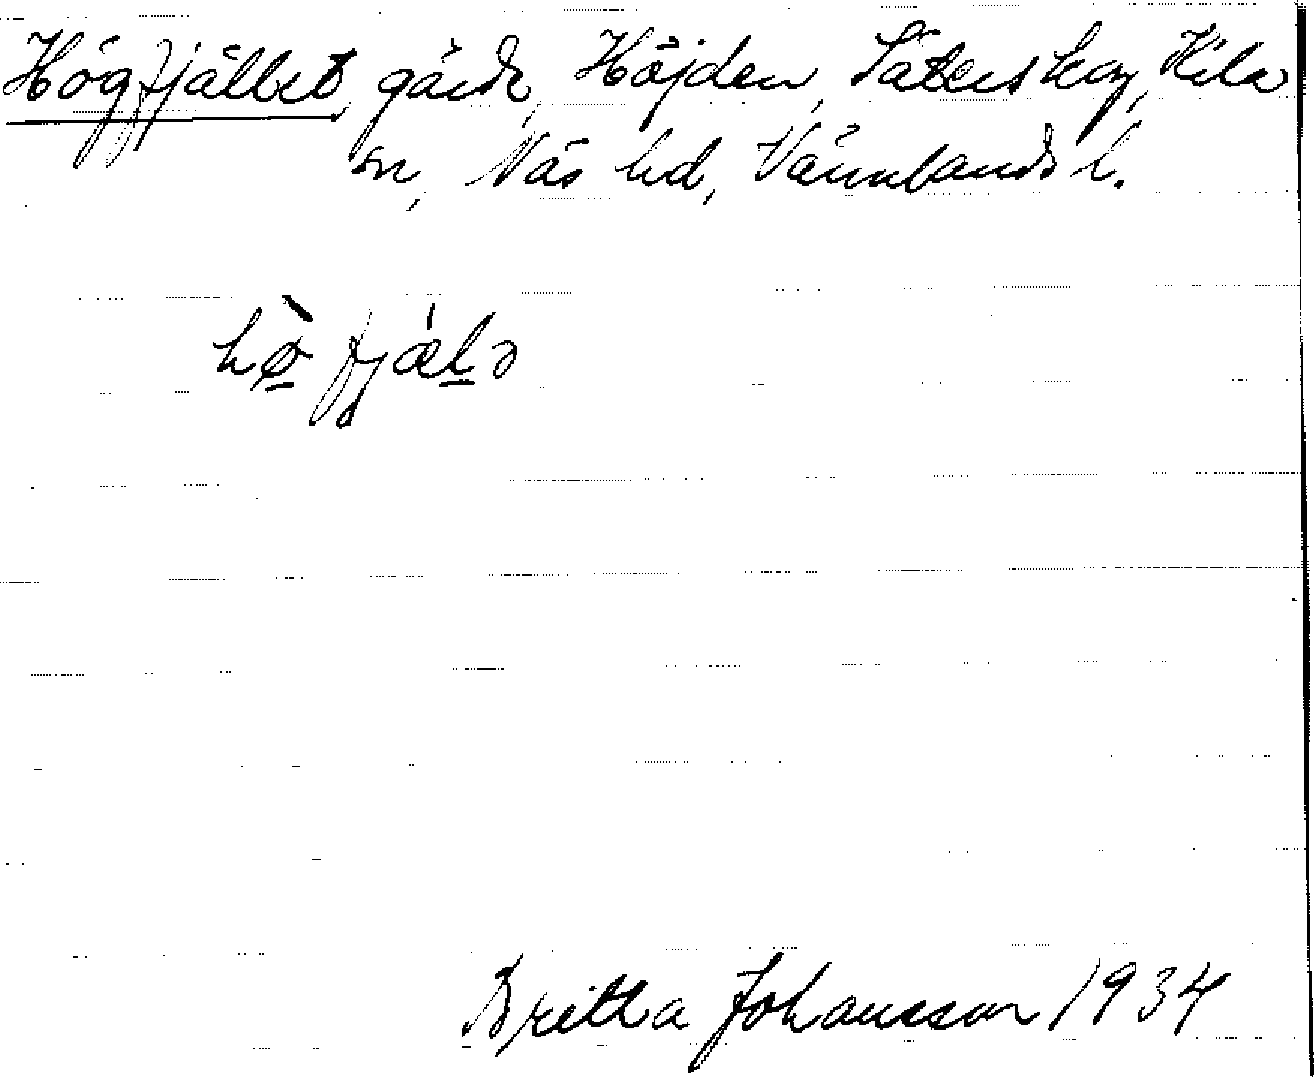 Högfjället, gård, Höjden, Säterskog, Kila
sn, Näs hd, Värmlands l.
hø̀ fjæ̍lə
Britta Johansson 1934